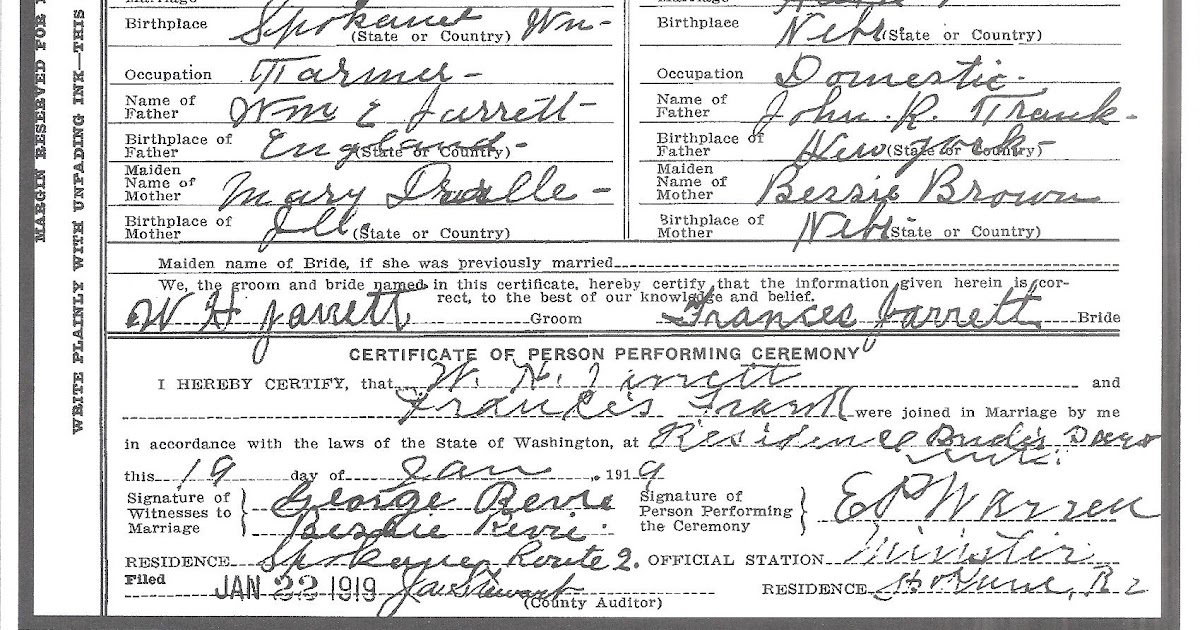 MARGIN RESERVED FOR
WRITE PLAINLY WITH UNFADING INK—THIS
Birthplace Spokane Wn- (State or Country)
Birthplace Nebr (State or Country)
Occupation Farmer-
Occupation Domestic-
Name of Father Wm E Jarrett-
Name of Father John. R. Frank-
Birthplace of Father England- (State or Country)
Birthplace of Father New York- (State or Country)
Maiden Name of Mother Mary
Maiden Name of Mother Bessie Brown
Birthplace of Mother Ill (State or Country)
Birthplace of Mother Nebr (State or Country)
Maiden name of Bride, if she was previously married
We, the groom and bride named in this certificate, hereby certify that the information given herein is cor-
rect, to the best of our knowledge and belief.
W H Jarrett Groom Frances Jarrett Bride
CERTIFICATE OF PERSON PERFORMING CEREMONY
I HEREBY CERTIFY, that W. H. Jarrett and
Frances Frank were joined in Marriage by me
in accordance with the laws of the State of Washington, at Residence Brides
this 19 day of Jan , 1919
Signature of Witnesses to Marriage } George Revie
Bessie Revie.
Signature of Person Performing the Ceremony } E P Warren
RESIDENCE Spokane Route 2. OFFICIAL STATION Minister
Filed JAN 22 1919 J W Stewart
(County Auditor)
RESIDENCE Spokane, R 2